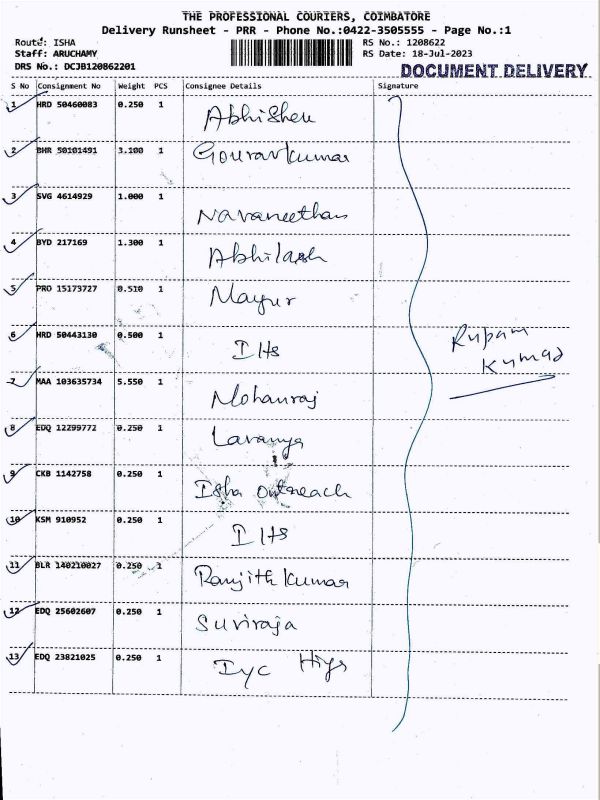 THE PROFESSIONAL COURIERS, COIMBATORE
Delivery Runsheet - PRR - Phone No.:0422-3505555 - Page No.:1
Route: ISHA
RS No.: 1208622
Staff: ARUCHAMY
RS Date: 18-Jul-2023
DRS No.: DCJB120862201
DOCUMENT DELIVERY
S No Consignment No Weight PCS Consignee Details Signature
1 HRD 50460083 0.250 1 Abhishek
2 BHR 50101491 3.100 1 Gouravkumar
3 SVG 4614929 1.000 1 Navaneethan
4 BYD 217169 1.300 1 Abhilash
5 PRO 15173727 0.510 1 Mayur
6 HRD 50443130 0.500 1 IHS
Rupam
Kumar
7 MAA 103635734 5.550 1 Mohanraj
8 EDQ 12299772 0.250 1 Lavanya
9 CKB 1142758 0.250 1 Isha outreach
10 KSM 910952 0.250 1 IHS
11 BLR 140210027 0.250 1 Ranjith Kumar
12 EDQ 25602607 0.250 1 Suriraja
13 EDQ 23821025 0.250 1 Iyc